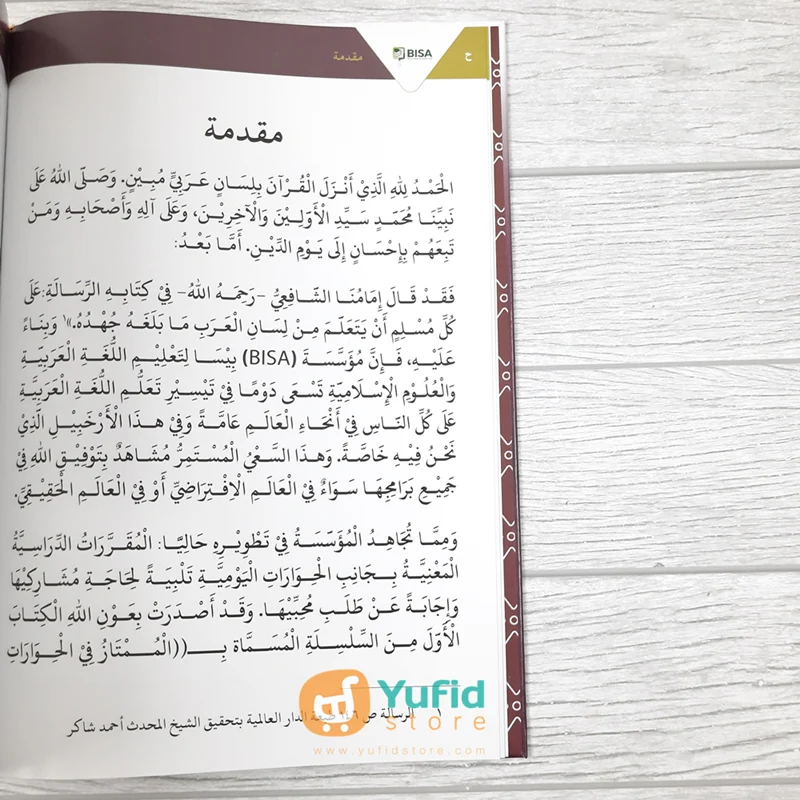 ح
BISA
مقدمة
مقدمة
الْحَمْدُ لِلهِ الَّذِيْ أَنْزَلَ الْقُرْآنَ بِلِسَانٍ عَرَبِيٍّ مُبِيْنٍ. وَصَلَّى اللهُ عَلَى
نَبِيِّنَا مُحَمَّدٍ سَيِّدِ الْأَوَّلِيْنَ وَالْآخِرِيْنَ، وَعَلَى آلِهِ وَأَصْحَابِهِ وَمَنْ
تَبِعَهُمْ بِإِحْسَانٍ إِلَى يَوْمِ الدِّيْنِ. أَمَّا بَعْدُ:
فَقَدْ قَالَ إِمَامُنَا الشَّافِعِيُّ -رَحِمَهُ اللهُ- فِيْ كِتَابِهِ الرِّسَالَةِ:عَلَى
كُلِّ مُسْلِمٍ أَنْ يَتَعَلَّمَ مِنْ لِسَانِ الْعَرَبِ مَا بَلَغَهُ جُهْدُهُ.»١ وَبِنَاءً
عَلَيْهِ، فَإِنَّ مُؤَسَّسَةَ (BISA) بِيْسَا لِتَعْلِيْمِ اللُّغَةِ الْعَرَبِيَّةِ
وَالْعُلُوْمِ الْإِسْلَامِيَّةِ تَسْعَى دَوْمًا فِيْ تَيْسِيْرِ تَعَلُّمِ اللُّغَةِ الْعَرَبِيَّةِ
عَلَى كُلِّ النَّاسِ فِيْ أَنْحَاءِ الْعَالَمِ عَامَّةً وَفِيْ هٰذَا الْأَرْخَبِيْلِ الَّذِيْ
نَحْنُ فِيْهِ خَاصَّةً. وَهٰذَا السَّعْيُ الْمُسْتَمِرُّ مُشَاهَدٌ بِتَوْفِيْقِ اللهِ فِيْ
جَمِيْعِ بَرَامِجِهَا سَوَاءٌ فِيْ الْعَالَمِ الْاِفْتِرَاضِيِّ أَوْ فِيْ الْعَالَمِ الْحَقِيْقِيِّ.
وَمِمَّا تُجَاهِدُ الْمُؤَسَّسَةُ فِيْ تَطْوِيْرِهِ حَالِيًّا: الْمُقَرَّرَاتُ الدِّرَاسِيَّةُ
الْمَعْنِيَّةُ بِجَانِبِ الْحِوَارَاتِ الْيَوْمِيَّةِ تَلْبِيَةً لِحَاجَةِ مُشَارِكِيْهَا
وَإِجَابَةً عَنْ طَلَبِ مُحِبِّيْهَا. وَقَدْ أَصْدَرَتْ بِعَوْنِ اللهِ الْكِتَابَ
الْأَوَّلَ مِنَ السِّلْسِلَةِ الْمُسَمَّاةِ بِـ((الْمُمْتَازُ فِيْ الْحِوَارَاتِ
Yufid
store
١ الرسالة ص ١٤٦ طبعة الدار العالمية بتحقيق الشيخ المحدث أحمد شاكر
www.yufidstore.com